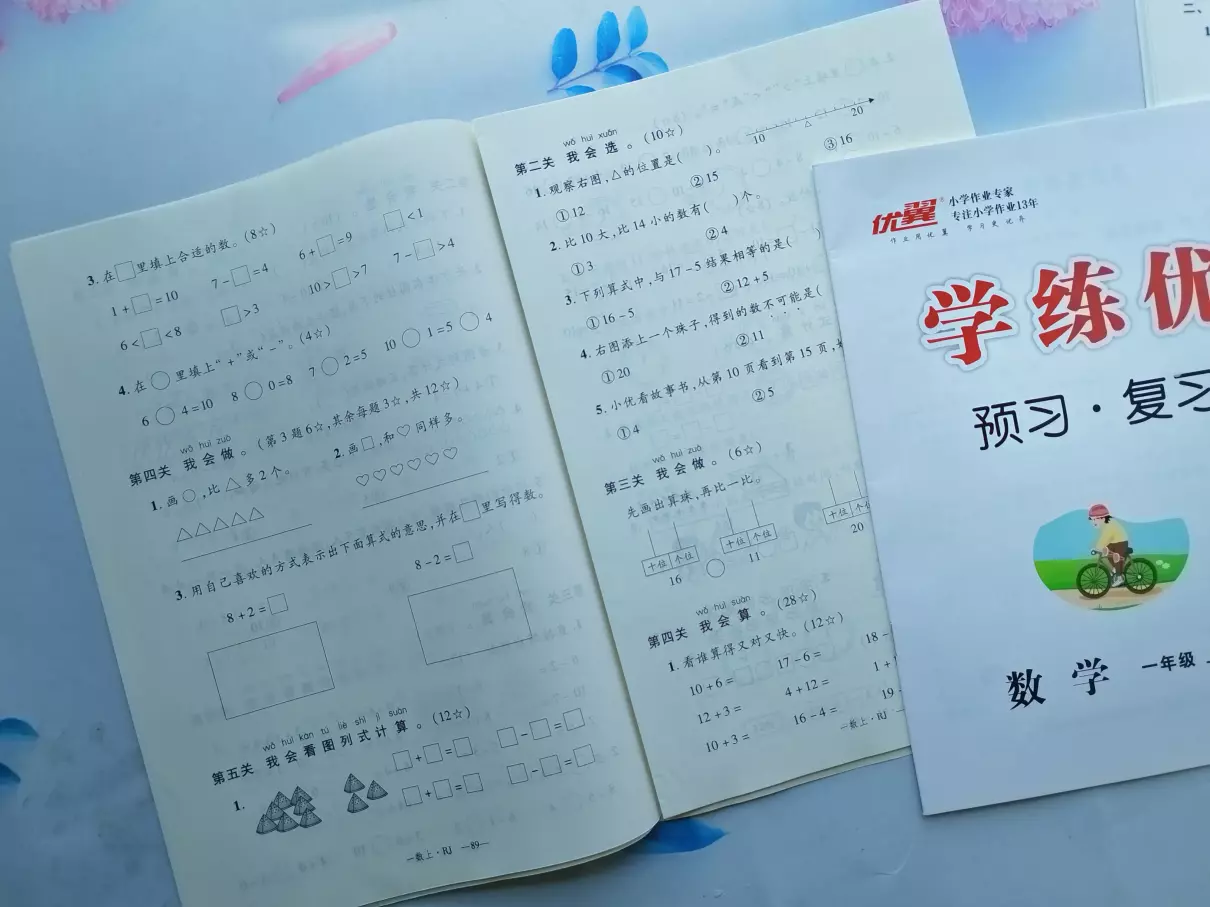 3. 在□里填上合适的数。(8☆)
1+□=10 7-□=4 6+□=9 □<1
6<□<8 □>3 10>□>7 7-□>4
4. 在○里填上“+”或“-”。(4☆)
6○4=10 8○0=8 7○2=5 10○1=5○4
wǒ huì zuò
第四关 我会做。(第3题6☆,其余每题3☆,共12☆)
1. 画○,比△多2个。 2. 画□,和♡同样多。
△△△△△ ♡♡♡♡♡♡
3. 用自己喜欢的方式表示出下面算式的意思,并在□里写得数。
8+2=□ 8-2=□
wǒ huì kàn tú liè shì jì suàn
第五关 我会看图列式计算。(12☆)
1. □+□=□ □-□=□
□+□=□ □-□=□
一数上·RJ —89—
wǒ huì xuǎn
第二关 我会选。(10☆)
1. 观察右图,△的位置是( )。
10 △ 20
①12 ②15 ③16
2. 比10大,比14小的数有( )个。
①3 ②4
3. 下列算式中,与17-5结果相等的是( )
①16-5 ②12+5
4. 右图添上一个珠子,得到的数不可能是(
①20 ②11
5. 小优看故事书,从第10页看到第15页,
①4 ②5
wǒ huì zuò
第三关 我会做。(6☆)
先画出算珠,再比一比。
十位 个位 十位 个位 十位
16 ○ 11 20
wǒ huì suàn
第四关 我会算。(28☆)
1. 看谁算得又对又快。(12☆)
10+6= 17-6= (18-
12+3= 4+12= 1+
10+3= 16-4= 19-
一数上·RJ
优翼
小学作业专家
专注小学作业13年
作业用优翼 学习更优异
学练优
预习·复习
数学 一年级
二、